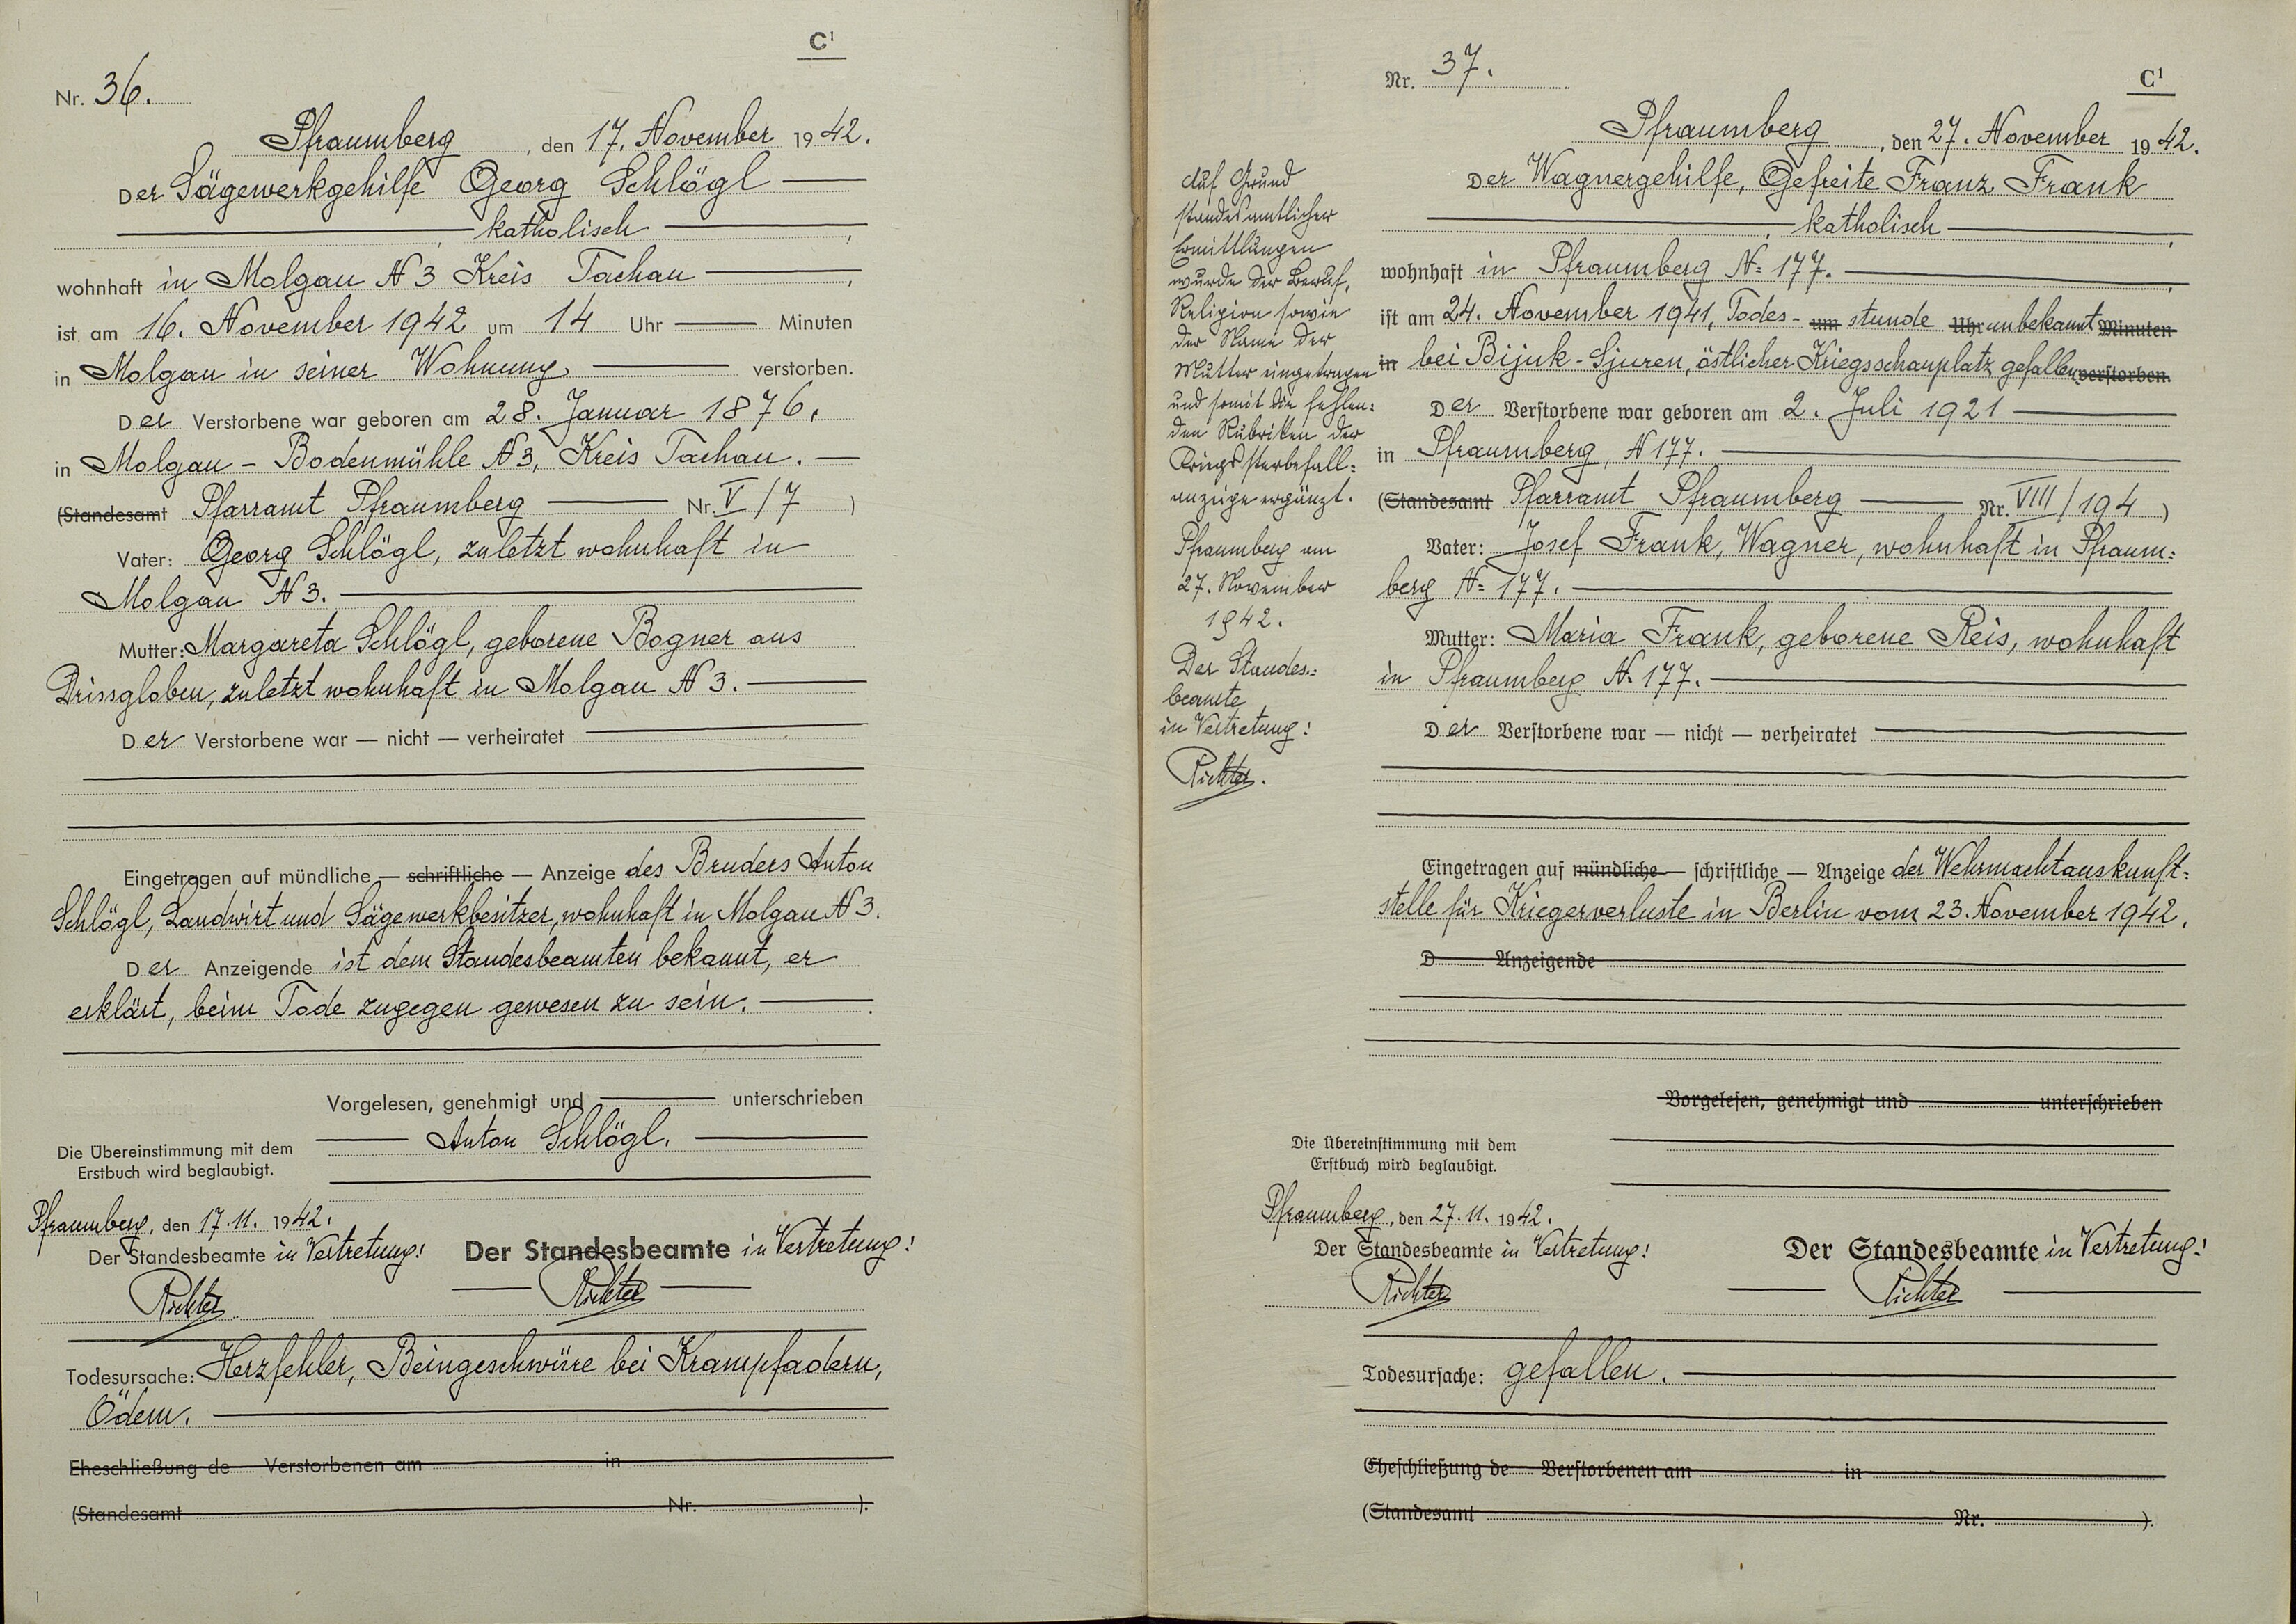 C¹
Nr. 36.
Pfraumberg, den 17. November 1942.
Der Sägewerkgehilfe Georg Schlögl
katholisch
wohnhaft in Molgau N 3 Kreis Tachau
ist am 16. November 1942 um 14 Uhr Minuten
in Molgau in seiner Wohnung, verstorben.
Der Verstorbene war geboren am 28. Januar 1876.
in Molgau - Bodenmühle N 3, Kreis Tachau.
(Standesamt Pfarramt Pfraumberg Nr. V/7 )
Vater: Georg Schlögl, zuletzt wohnhaft in
Molgau N 3.
Mutter: Margareta Schlögl, geborene Bogner aus
Drissgloben, zuletzt wohnhaft in Molgau N 3.
Der Verstorbene war — nicht — verheiratet
Eingetragen auf mündliche — schriftliche — Anzeige des Bruders Anton
Schlögl, Landwirt und Sägewerkbesitzer, wohnhaft in Molgau N 3.
Der Anzeigende ist dem Standesbeamten bekannt, er
erklärt, beim Tode zugegen gewesen zu sein.
Vorgelesen, genehmigt und unterschrieben
Anton Schlögl.
Die Übereinstimmung mit dem
Erstbuch wird beglaubigt.
Pfraumberg, den 17.11. 1942.
Der Standesbeamte in Vertretung!
Richter.
Der Standesbeamte in Vertretung!
Richter
Todesursache: Herzfehler, Beingeschwüre bei Krampfadern,
Ödem.
Eheschließung de Verstorbenen am in
(Standesamt Nr. ).
Nr. 37.
C¹
Pfraumberg, den 27. November 1942.
Der Wagnergehilfe, Gefreite Franz Frank
katholisch
wohnhaft in Pfraumberg N= 177.
ist am 24. November 1941, Todes- um stunde Uhr unbekannt Minuten
in bei Bijuk-Sjuren, östlicher Kriegsschauplatz gefallen verstorben.
Der Verstorbene war geboren am 2. Juli 1921
in Pfraumberg, N 177.
(Standesamt Pfarramt Pfraumberg Nr. VIII/194 )
Vater: Josef Frank, Wagner, wohnhaft in Pfraum=
berg N= 177.
Mutter: Maria Frank, geborene Reis, wohnhaft
in Pfraumberg N. 177.
Der Verstorbene war — nicht — verheiratet
Eingetragen auf mündliche — schriftliche — Anzeige der Wehrmachtauskunft=
stelle für Kriegerverluste in Berlin vom 23. November 1942.
D Anzeigende
Vorgelesen, genehmigt und unterschrieben
Die Übereinstimmung mit dem
Erstbuch wird beglaubigt.
Pfraumberg, den 27.11. 1942.
Der Standesbeamte in Vertretung!
Richter
Der Standesbeamte in Vertretung!
Richter
Todesursache: gefallen.
Eheschließung de Verstorbenen am in
(Standesamt Nr. ).
Auf Grund
standesamtlicher
Ermittlungen
wurde der Beruf,
Religion sowie
der Name der
Mutter eingetragen
und somit die fehlen=
den Rubriken der
Kriegssterbefall=
anzeige ergänzt.
Pfraumberg am
27. November
1942.
Der Standes=
beamte
in Vertretung!
Richter.